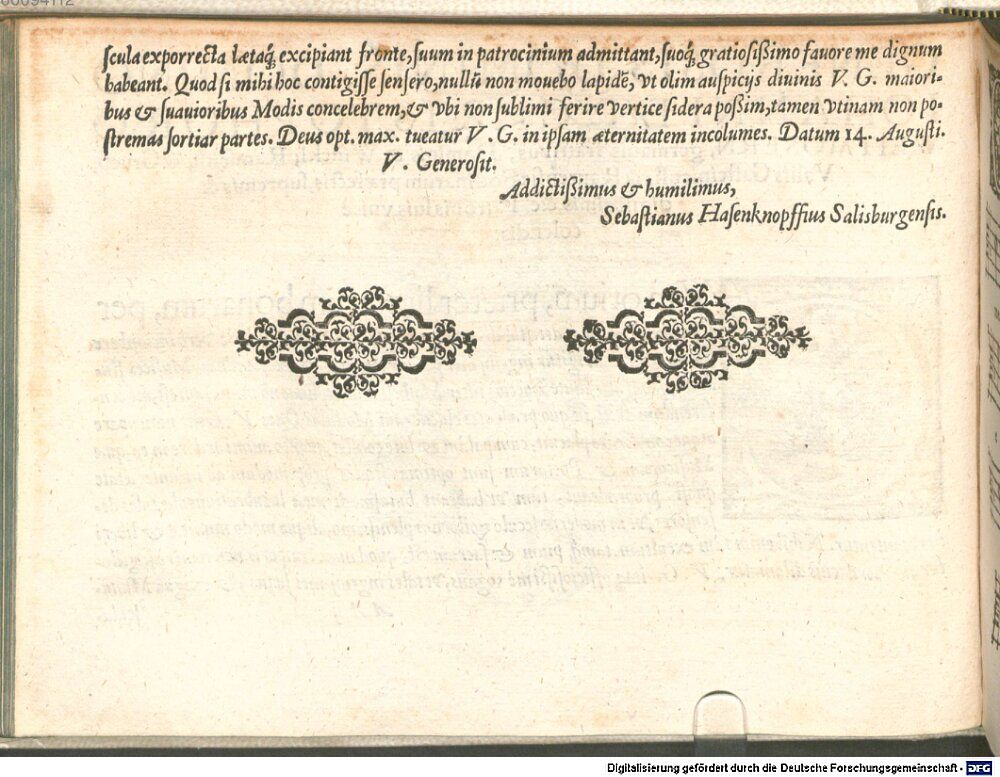 00094112
ſcula exporrecta lætaq́; excipiant fronte, ſuum in patrocinium admittant, ſuoq́; gratioſißimo fauore me dignum
habeant. Quod ſi mihi hoc contigiſſe ſenſero, nullũ non mouebo lapidẽ, vt olim auſpicijs diuinis V. G. maiori-
bus & ſuauioribus Modis concelebrem, & vbi non ſublimi ferire vertice ſidera poßim, tamen vtinam non po-
ſtremas ſortiar partes. Deus opt. max. tueatur V. G. in ipſam æternitatem incolumes. Datum 14. Auguſti.
V. Generoſit.
Addictißimus & humilimus,
Sebaſtianus Haſenknopffius Salisburgenſis.
Digitalisierung gefördert durch die Deutsche Forschungsgemeinschaft - DFG